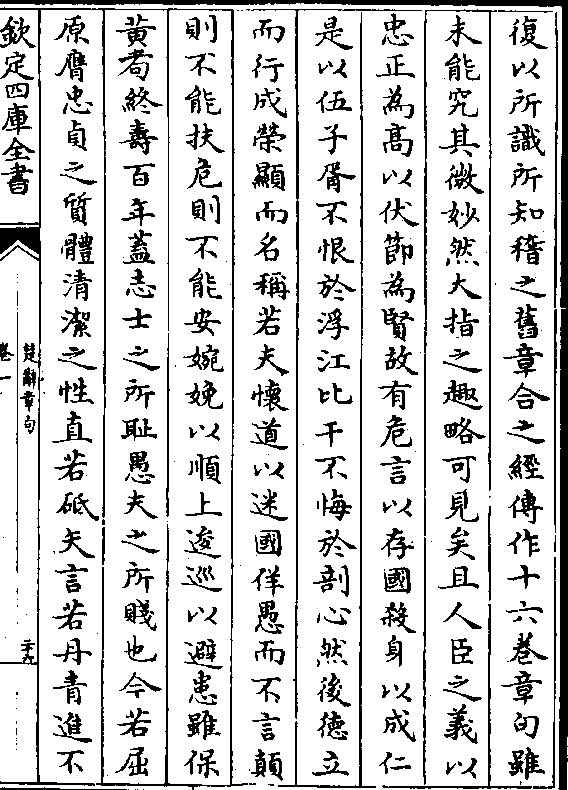 復以所識所知稽之舊章合之經傳作十六卷章句雖
未能究其微妙然大指之趣略可見矣且人臣之義以
忠正為髙以伏節為賢故有危言以存國殺身以成仁
是以伍子胥不恨於浮江比干不悔於剖心然後徳立
而行成榮顯而名稱若夫懐道以迷國佯愚而不言顛
則不能扶危則不能安婉娩以順上逡巡以避患雖保
黄耇終壽百年蓋志士之所恥愚夫之所賤也今若屈
原膺忠貞之質體清潔之性直若砥矢言若丹青進不
欽定四庫全書
楚辭章句
卷一
二十九